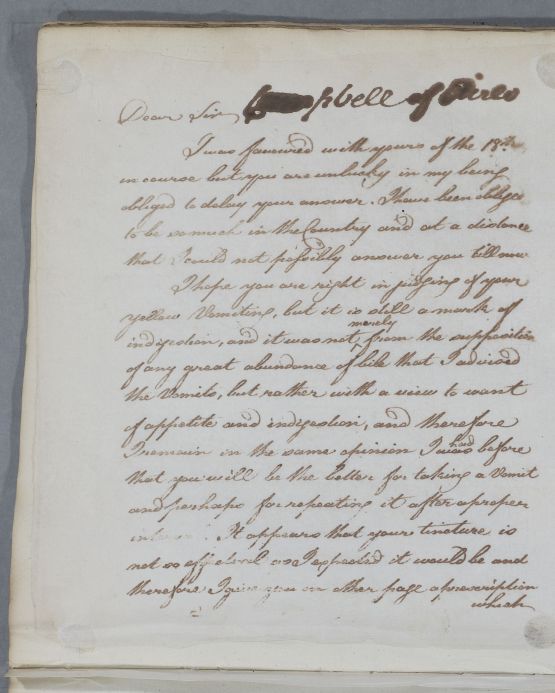 Dear Sir
pbell of Airls
I was favoured with yours of the 18th
in course but you are unlucky in my being
obliged to delay your answer. I have been obliged
to be so much in the Country and at a distance
that I could not possibly answer you till now
I hope you are right in judging of your
yellow Vomiting, but it is still a mark of
merely
indigestion, and it was not ^ from the supposition
of any great abundance of bile that I advised
the Vomits, but rather with a view to want
of appetite and indigestion, and therefore
had
I remain in the same opinion I was before
that you will be the better for taking a Vomit
and perhaps for repeating it after a proper
It appears that your tincture is
not so effectual as I expected it would be and
therefore I give you on other page a prescription
which